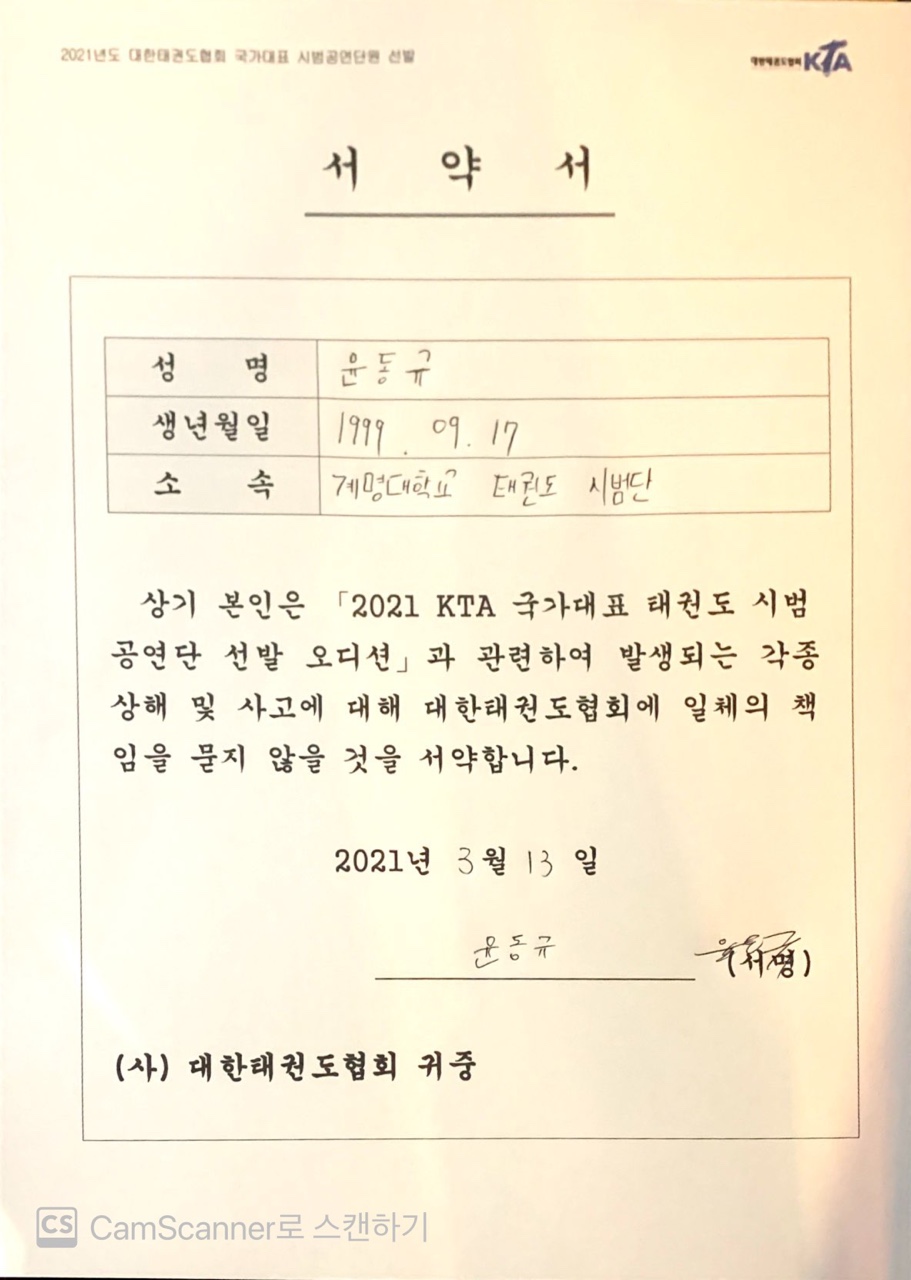 2021년도 대한태권도협회 국가대표 시범공연단원 선발
대한태권도협회 KTA
서 약 서
성 명 윤동규
생년월일 1999. 09. 17
소 속 계명대학교 태권도 시범단
상기 본인은 「2021 KTA 국가대표 태권도 시범
공연단 선발 오디션」과 관련하여 발생되는 각종
상해 및 사고에 대해 대한태권도협회에 일체의 책
임을 묻지 않을 것을 서약합니다.
2021년 3월 13일
윤동규 윤동규 (서명)
(사) 대한태권도협회 귀중
CS CamScanner로 스캔하기